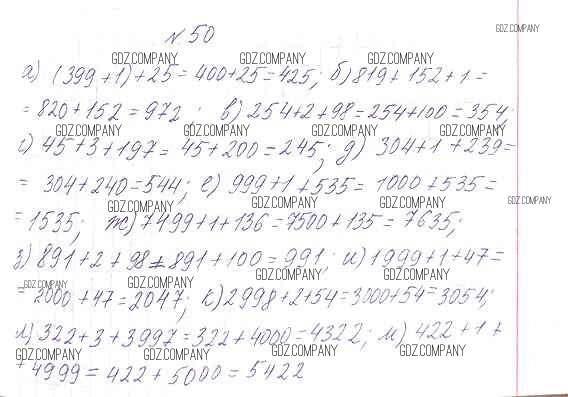 GDZ.COMPANY
№ 50
GDZ.COMPANY GDZ.COMPANY GDZ.COMPANY
а) (399+1)+25=400+25=425; б) 819+152+1=
=820+152=972; в) 254+2+98=254+100=354;
GDZ.COMPANY GDZ.COMPANY GDZ.COMPANY GDZ.COMPANY
г) 45+3+197=45+200=245; д) 304+1+239=
=304+240=544; е) 999+1+535=1000+535=
GDZ.COMPANY GDZ.COMPANY GDZ.COMPANY GDZ.COMPANY
=1535; ж) 7499+1+136=7500+135=7635;
з) 891+2+98=891+100=991; и) 1999+1+47=
GDZ.COMPANY GDZ.COMPANY GDZ.COMPANY GDZ.COMPANY
=2000+47=2047; к) 2998+2+54=3000+54=3054;
л) 322+3+3997=322+4000=4322; м) 422+1+
GDZ.COMPANY GDZ.COMPANY GDZ.COMPANY GDZ.COMPANY
+4999=422+5000=5422